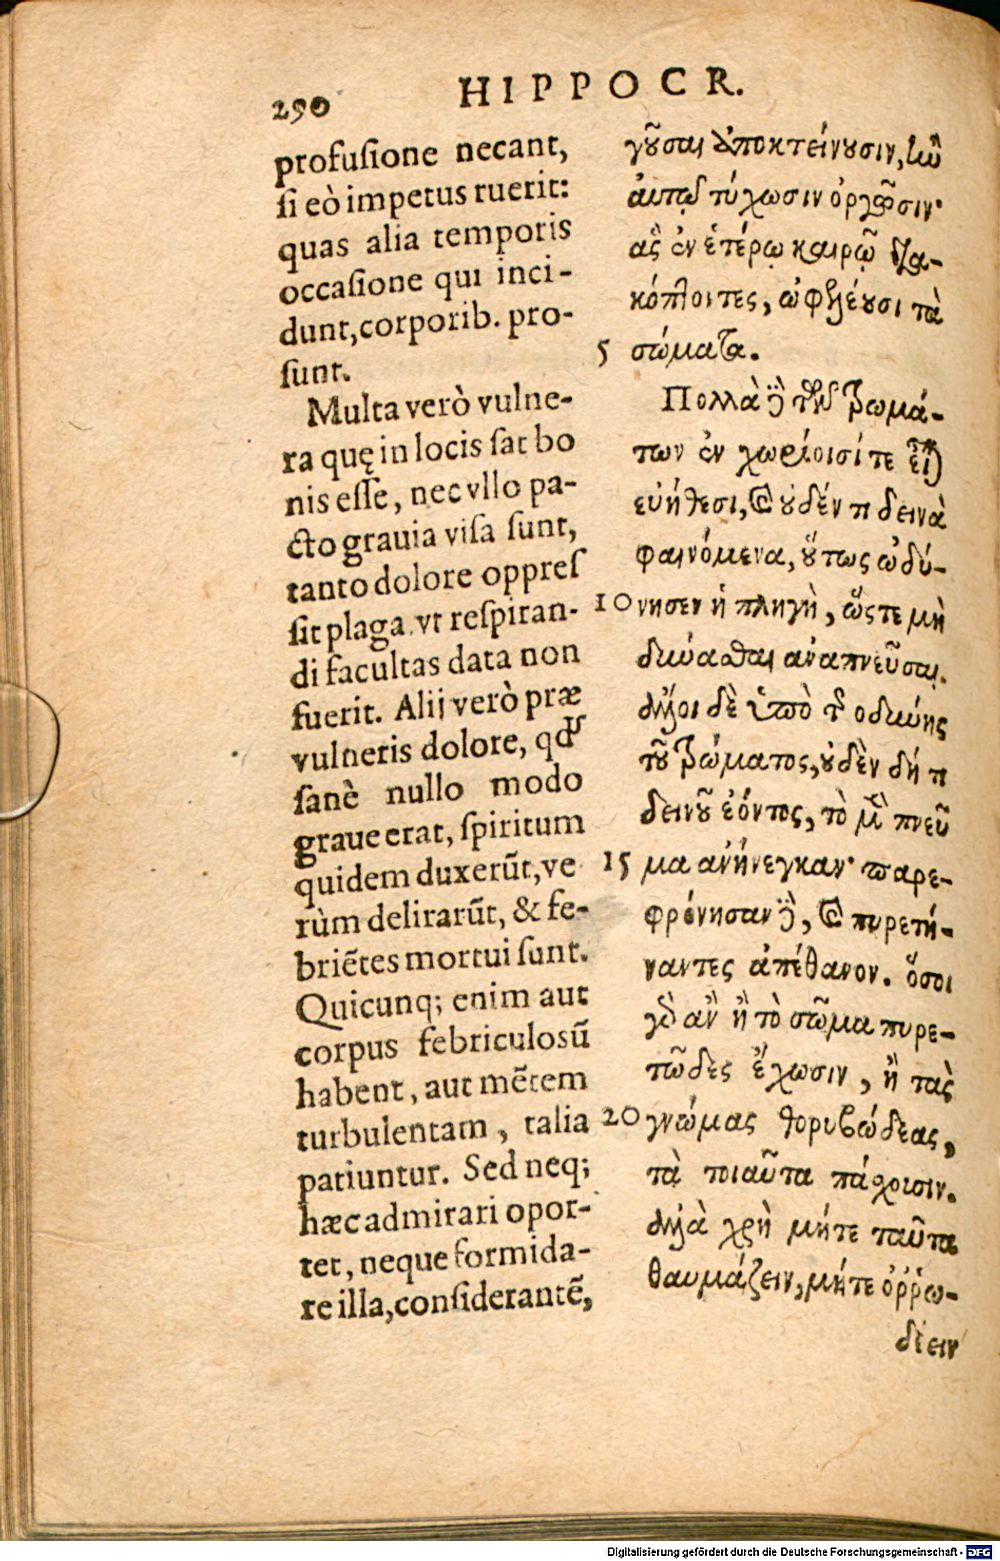 290
HIPPOCR.
profusione necant,
si eò impetus ruerit:
quas alia temporis
occasione qui inci-
dunt, corporib. pro-
sunt.
Multa verò vulne-
ra quę in locis sat bo
nis esse, nec vllo pa-
cto grauia visa sunt,
tanto dolore oppres
sit plaga, vt respiran-
di facultas data non
fuerit. Alij verò præ
vulneris dolore, qđ
sanè nullo modo
graue erat, spiritum
quidem duxerũt, ve
rùm delirarũt, & fe-
briẽtes mortui sunt.
Quicunq; enim aut
corpus febriculosũ
habent, aut mẽtem
turbulentam, talia
patiuntur. Sed neq;
hæc admirari opor-
tet, neque formida-
re illa, considerantẽ,
γουσαι ἀποκτείνουσιν, ἐὰν
αὐτῷ τύχωσιν ὀργῶσιν·
ἃς ἐν ἑτέρῳ καιρῷ δια-
κόπτοντες, ὠφελέουσι τὰ
5 σώματα.
Πολλὰ δὲ τῶν τρωμά-
των ἐν χωρίοισί τε εἶναι
εὐήθεσι, καὶ οὐδέν τι δεινὰ
φαινόμενα, οὕτως ὠδύ-
10 νησεν ἡ πληγὴ, ὥστε μὴ
δύνασθαι ἀναπνεῦσαι.
ἄλλοι δὲ ὑπὸ τῆς ὀδύνης
τοῦ τρώματος, οὐδὲν δή τι
δεινοῦ ἐόντος, τὸ μὲν πνεῦ
15 μα ἀνήνεγκαν· παρε-
φρόνησαν δὲ, καὶ πυρετή-
ναντες ἀπέθανον. ὅσοι
γὰρ ἂν ἢ τὸ σῶμα πυρε-
τῶδες ἔχωσιν, ἢ τὰς
20 γνώμας θορυβώδεας,
τὰ τοιαῦτα πάσχουσιν.
ἀλλὰ χρὴ μήτε ταῦτα
θαυμάζειν, μήτε ὀῤῥω-
δέειν
Digitalisierung gefördert durch die Deutsche Forschungsgemeinschaft - DFG